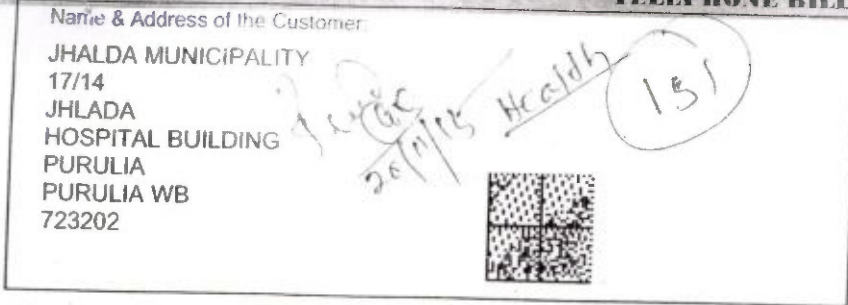 TELEPHONE BILL
Name & Address of the Customer:
JHALDA MUNICIPALITY
17/14
JHLADA
HOSPITAL BUILDING
PURULIA
PURULIA WB
723202
Health
151